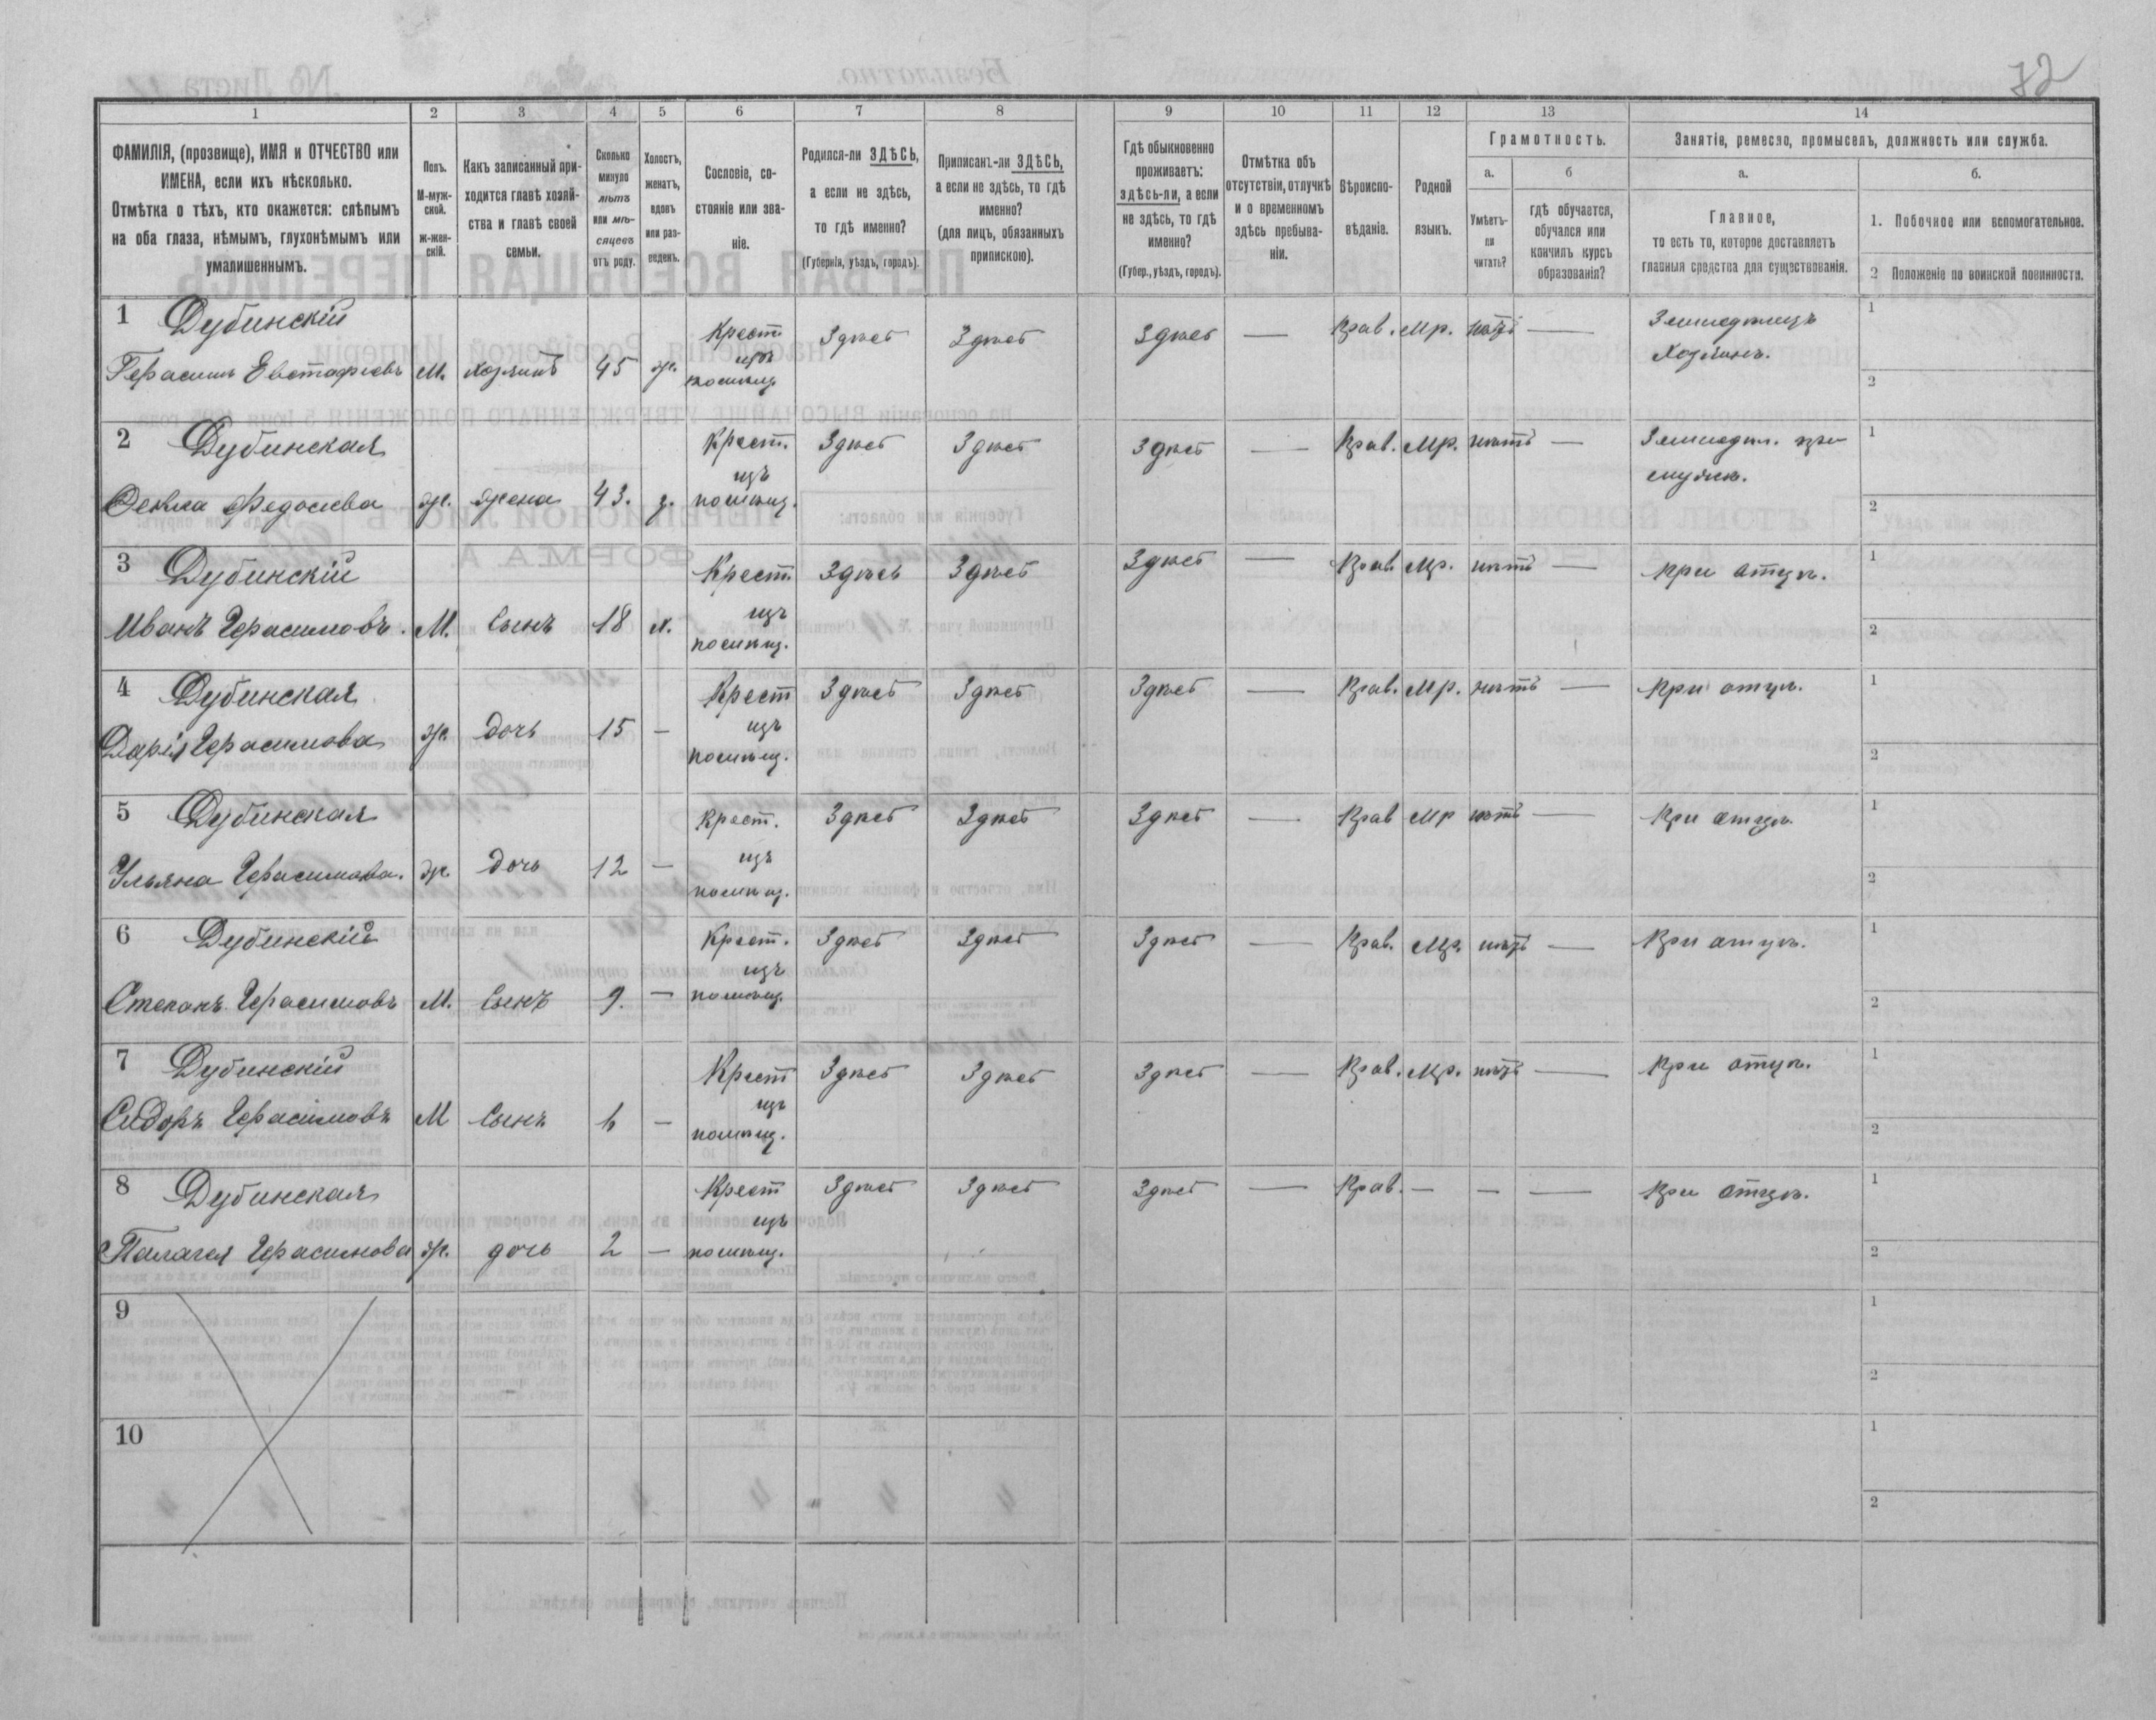 72
1 2 3 4 5 6 7 8 9 10 11 12 13 14
ФАМИЛІЯ, (прозвище), ИМЯ и ОТЧЕСТВО или
ИМЕНА, если ихъ нѣсколько.
Отмѣтка о тѣхъ, кто окажется: слѣпымъ
на оба глаза, нѣмымъ, глухонѣмымъ или
умалишеннымъ.
Полъ.
М-муж-
ской.
ж-жен-
скій.
Какъ записанный при-
ходится главѣ хозяй-
ства и главѣ своей
семьи.
Сколько
минуло
лѣтъ
или мѣ-
сяцевъ
отъ роду.
Холостъ,
женатъ,
вдовъ
или раз-
веденъ.
Сословіе, со-
стояніе или зва-
ніе.
Родился-ли ЗДѢСЬ,
а если не здѣсь,
то гдѣ именно?
(Губернія, уѣздъ, городъ).
Приписанъ-ли ЗДѢСЬ,
а если не здѣсь, то гдѣ
именно?
(для лицъ, обязанныхъ
припискою).
Гдѣ обыкновенно
проживаетъ:
здѣсь-ли, а если
не здѣсь, то гдѣ
именно?
(Губер., уѣздъ, городъ).
Отмѣтка объ
отсутствіи, отлучкѣ
и о временномъ
здѣсь пребыва-
ніи.
Вѣроиспо-
вѣданіе.
Родной
языкъ.
Грамотность.
а.
Умѣетъ-
ли
читать?
б
гдѣ обучается,
обучался или
кончилъ курсъ
образованія?
Занятіе, ремесло, промыселъ, должность или служба.
а.
Главное,
то есть то, которое доставляетъ
главныя средства для существованія.
б.
1. Побочное или вспомогательное.
2 Положеніе по воинской повинности.
1 Дубинскій Крест. Здѣсь Здѣсь Здѣсь — Прав. Мр. нѣтъ — Земледѣлецъ 1
Герасимъ Евстафіевъ М. хозяинъ 45 ж. изъ помѣщ. Хозяинъ. 2
2 Дубинская Крест. Здѣсь Здѣсь Здѣсь — Прав. Мр. нѣтъ — Земледѣл. при 1
Фекла Федосіева ж. жена 43. з. изъ помѣщ. мужѣ. 2
3 Дубинскій Крест Здѣсь Здѣсь Здѣсь — Прав. Мр. нѣтъ — При отцѣ. 1
Иванъ Герасимовъ. М. сынъ 18 х. изъ помѣщ. 2
4 Дубинская Крест Здѣсь Здѣсь Здѣсь — Прав. Мр. нѣтъ — При отцѣ. 1
Дарія Герасимова ж. дочь 15 — изъ помѣщ. 2
5 Дубинская Крест. Здѣсь Здѣсь Здѣсь — Прав Мр нѣтъ — При отцѣ. 1
Ульяна Герасимова. ж. дочь 12 — изъ помѣщ. 2
6 Дубинскій Крест. Здѣсь Здѣсь Здѣсь — Прав. Мр. нѣтъ — При отцѣ. 1
Степанъ Герасимовъ М. сынъ 9. — изъ помѣщ. 2
7 Дубинскій Крест Здѣсь Здѣсь Здѣсь — Прав. Мр. нѣтъ — При отцѣ. 1
Сидоръ Герасимовъ М сынъ 6 — изъ помѣщ. 2
8 Дубинская Крест Здѣсь Здѣсь Здѣсь — Прав. — — — При отцѣ. 1
Палагея Герасимова ж. дочь 2 — изъ помѣщ. 2
9 1
2
10 1
2